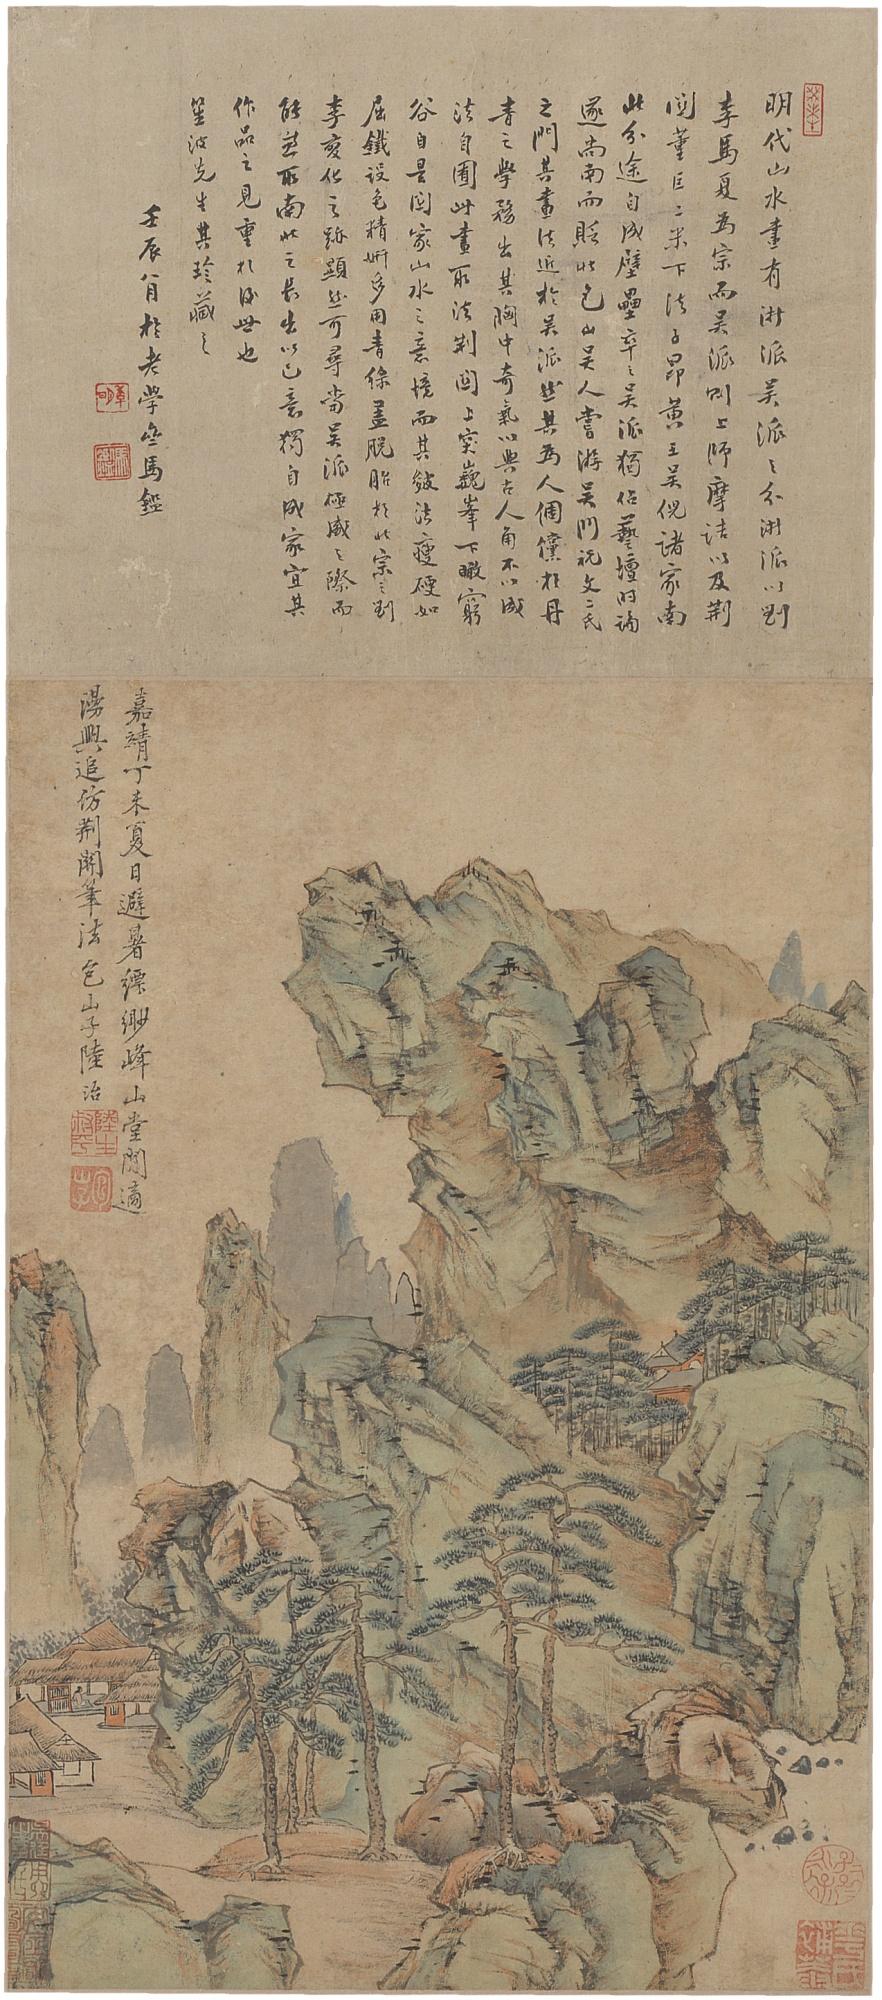 明代山水畫有浙派吴派之分浙派以劉
李馬夏為宗而吴派則上師摩詰以及荆
関董巨二米下法子昂黄王吴倪諸家南
北分途自成壁壘卒之吴派獨佔藝壇時論
遂尚南而貶北包山吴人嘗游吴門祝文二氏
之門其畫法近於吴派然其為人倜儻於丹
青之學務出其胸中奇氣以與古人角不以成
法自囿此畫取法荆関上突巍峯下瞰窮
谷自是関家山水之意境而其皴法瘦硬如
屈鐵設色精妍多用青綠盡脱胎於北宗之劉
李變化之跡顯然可尋當吴派極盛之際而
能兼取南北之長出以己意獨自成家宜其
作品之見重於後世也
笙波先生其珍藏之
壬辰八月於老學盦馬鑑
嘉靖丁未夏日避暑縹緲峰山堂閒適
漫興追仿荆関筆法包山子陸治